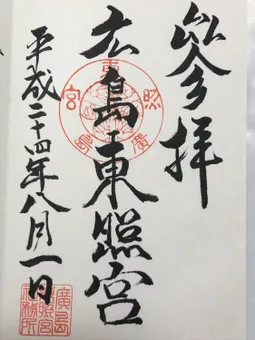 参拝
広島東照宮
平成二十四年八月一日
廣島東照宮
廣島
東照宮
社務所